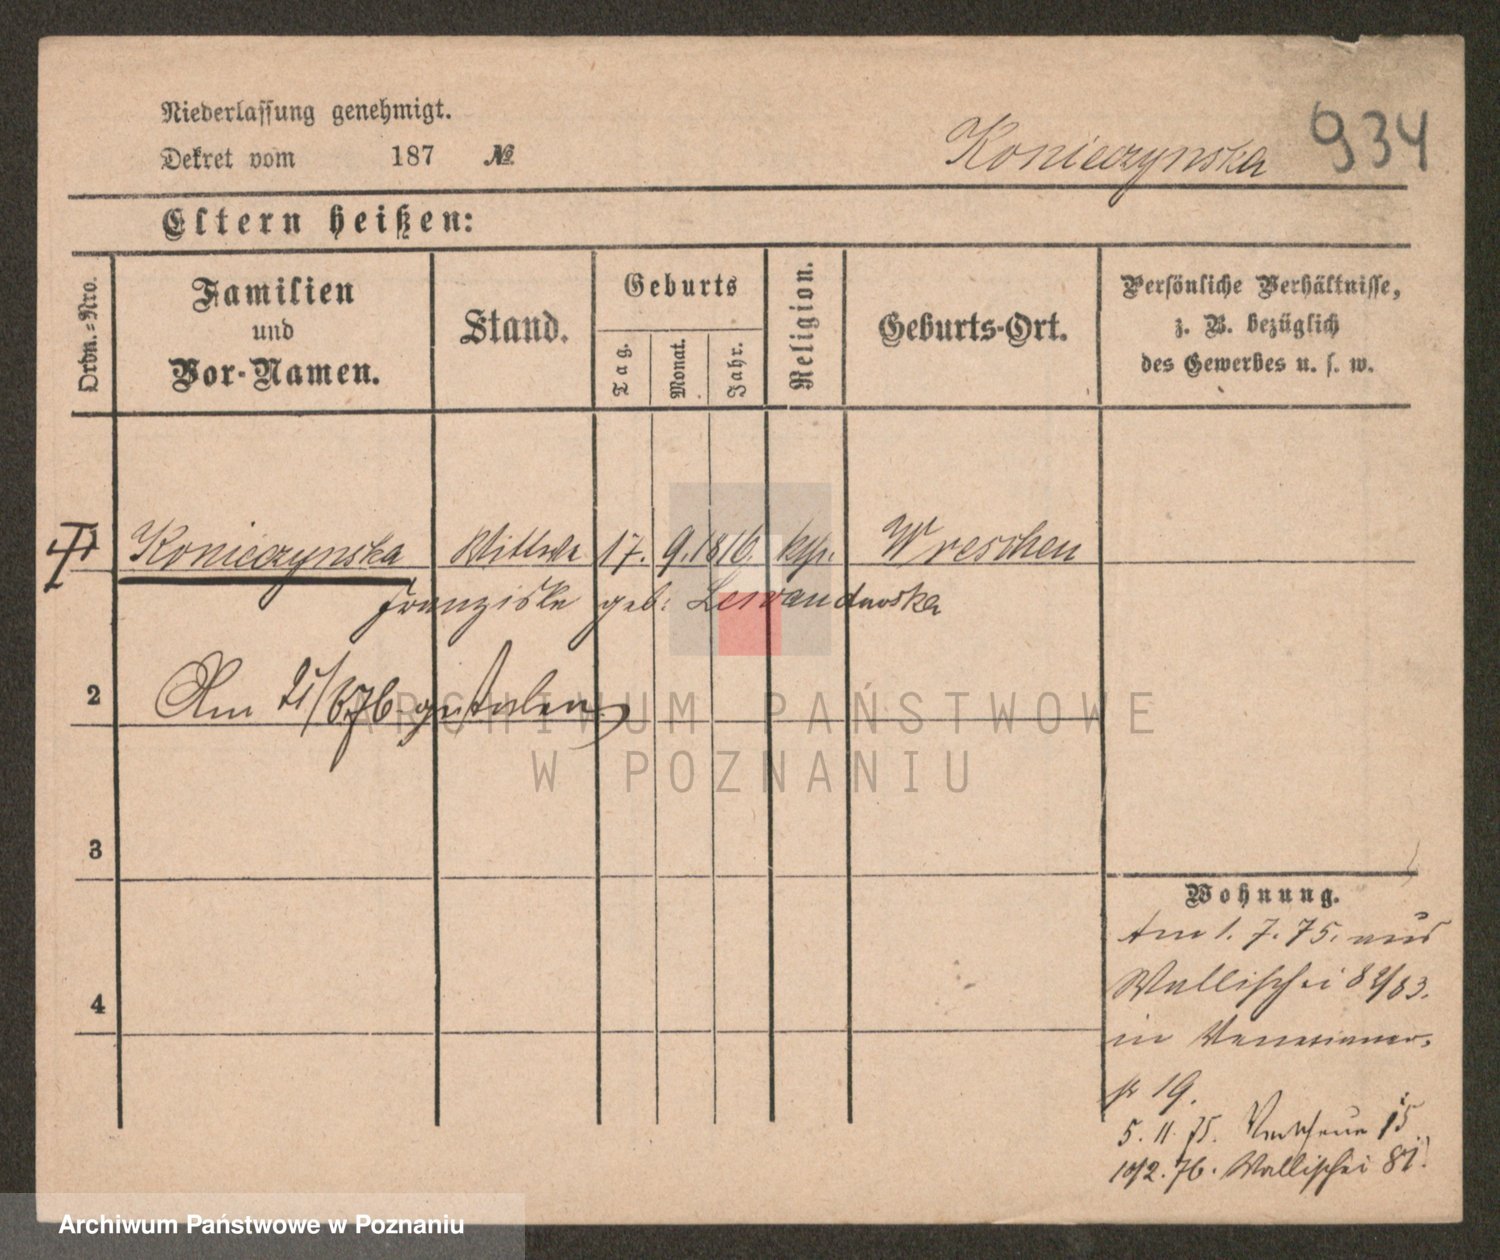 Niederlassung genehmigt.
Dekret vom 187 №
Konieczynska 934
Eltern heißen:
Ordn.=Nro.
Familien
und
Vor-Namen.
Stand.
Geburts
Tag.
Monat.
Jahr.
Religion.
Geburts-Ort.
Persönliche Verhältnisse,
z. B. bezüglich
des Gewerbes u. s. w.
1 Konieczynska Wittwe 17. 9. 1816. kth. Wreschen
Franziska geb. Lewandowska
2 Am /6 76 gestorben
3
4
Wohnung.
Am 1. 7. 75. aus
Wallischei 82/83.
in Venetianer-
str 19.
5. 11. 75. 15
10/2. 76. Wallischei 81.
ARCHIWUM PAŃSTWOWE
W POZNANIU
Archiwum Państwowe w Poznaniu